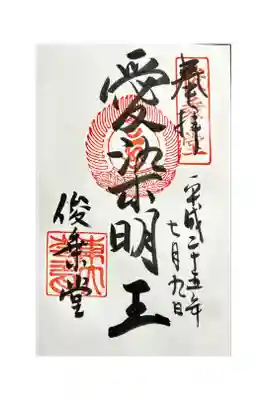 奉拝
平成二十五年
七月九日
愛染明王
俊乗堂